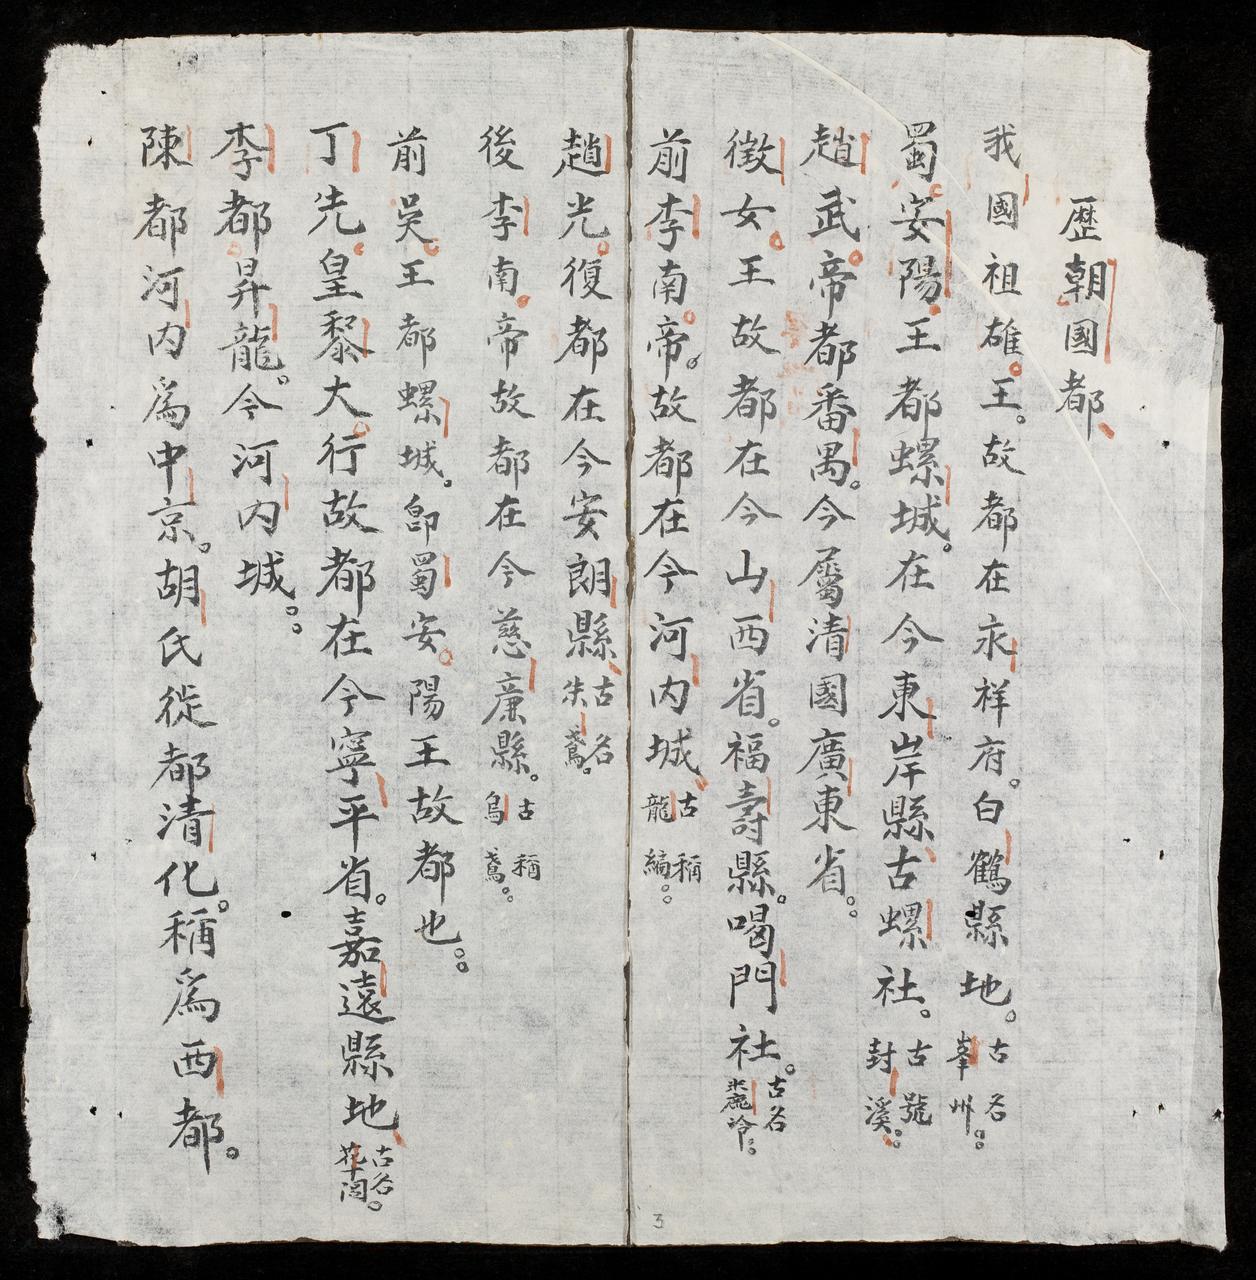 歷朝國都
我國祖雄王。故都在永祥府。白鶴縣地。古名峯州。
蜀安陽王都螺城。在今東岸縣古螺社。古號封溪。
趙武帝都番禺。今屬清國廣東省。
徵女王故都在今山西省。福壽縣。喝門社。古名麊泠。
前李南帝。故都在今河內城古稱龍編。
趙光復都在今安朗縣古名朱鳶。
後李南帝故都在今慈廉縣。古稱烏鳶。
前吳王都螺城。即蜀安陽王故都也。
丁先皇黎大行故都在今寧平省。嘉遠縣地古名花閭。
李都昇龍。今河內城。
陳都河內為中京。胡氏徙都清化。稱為西都。
3